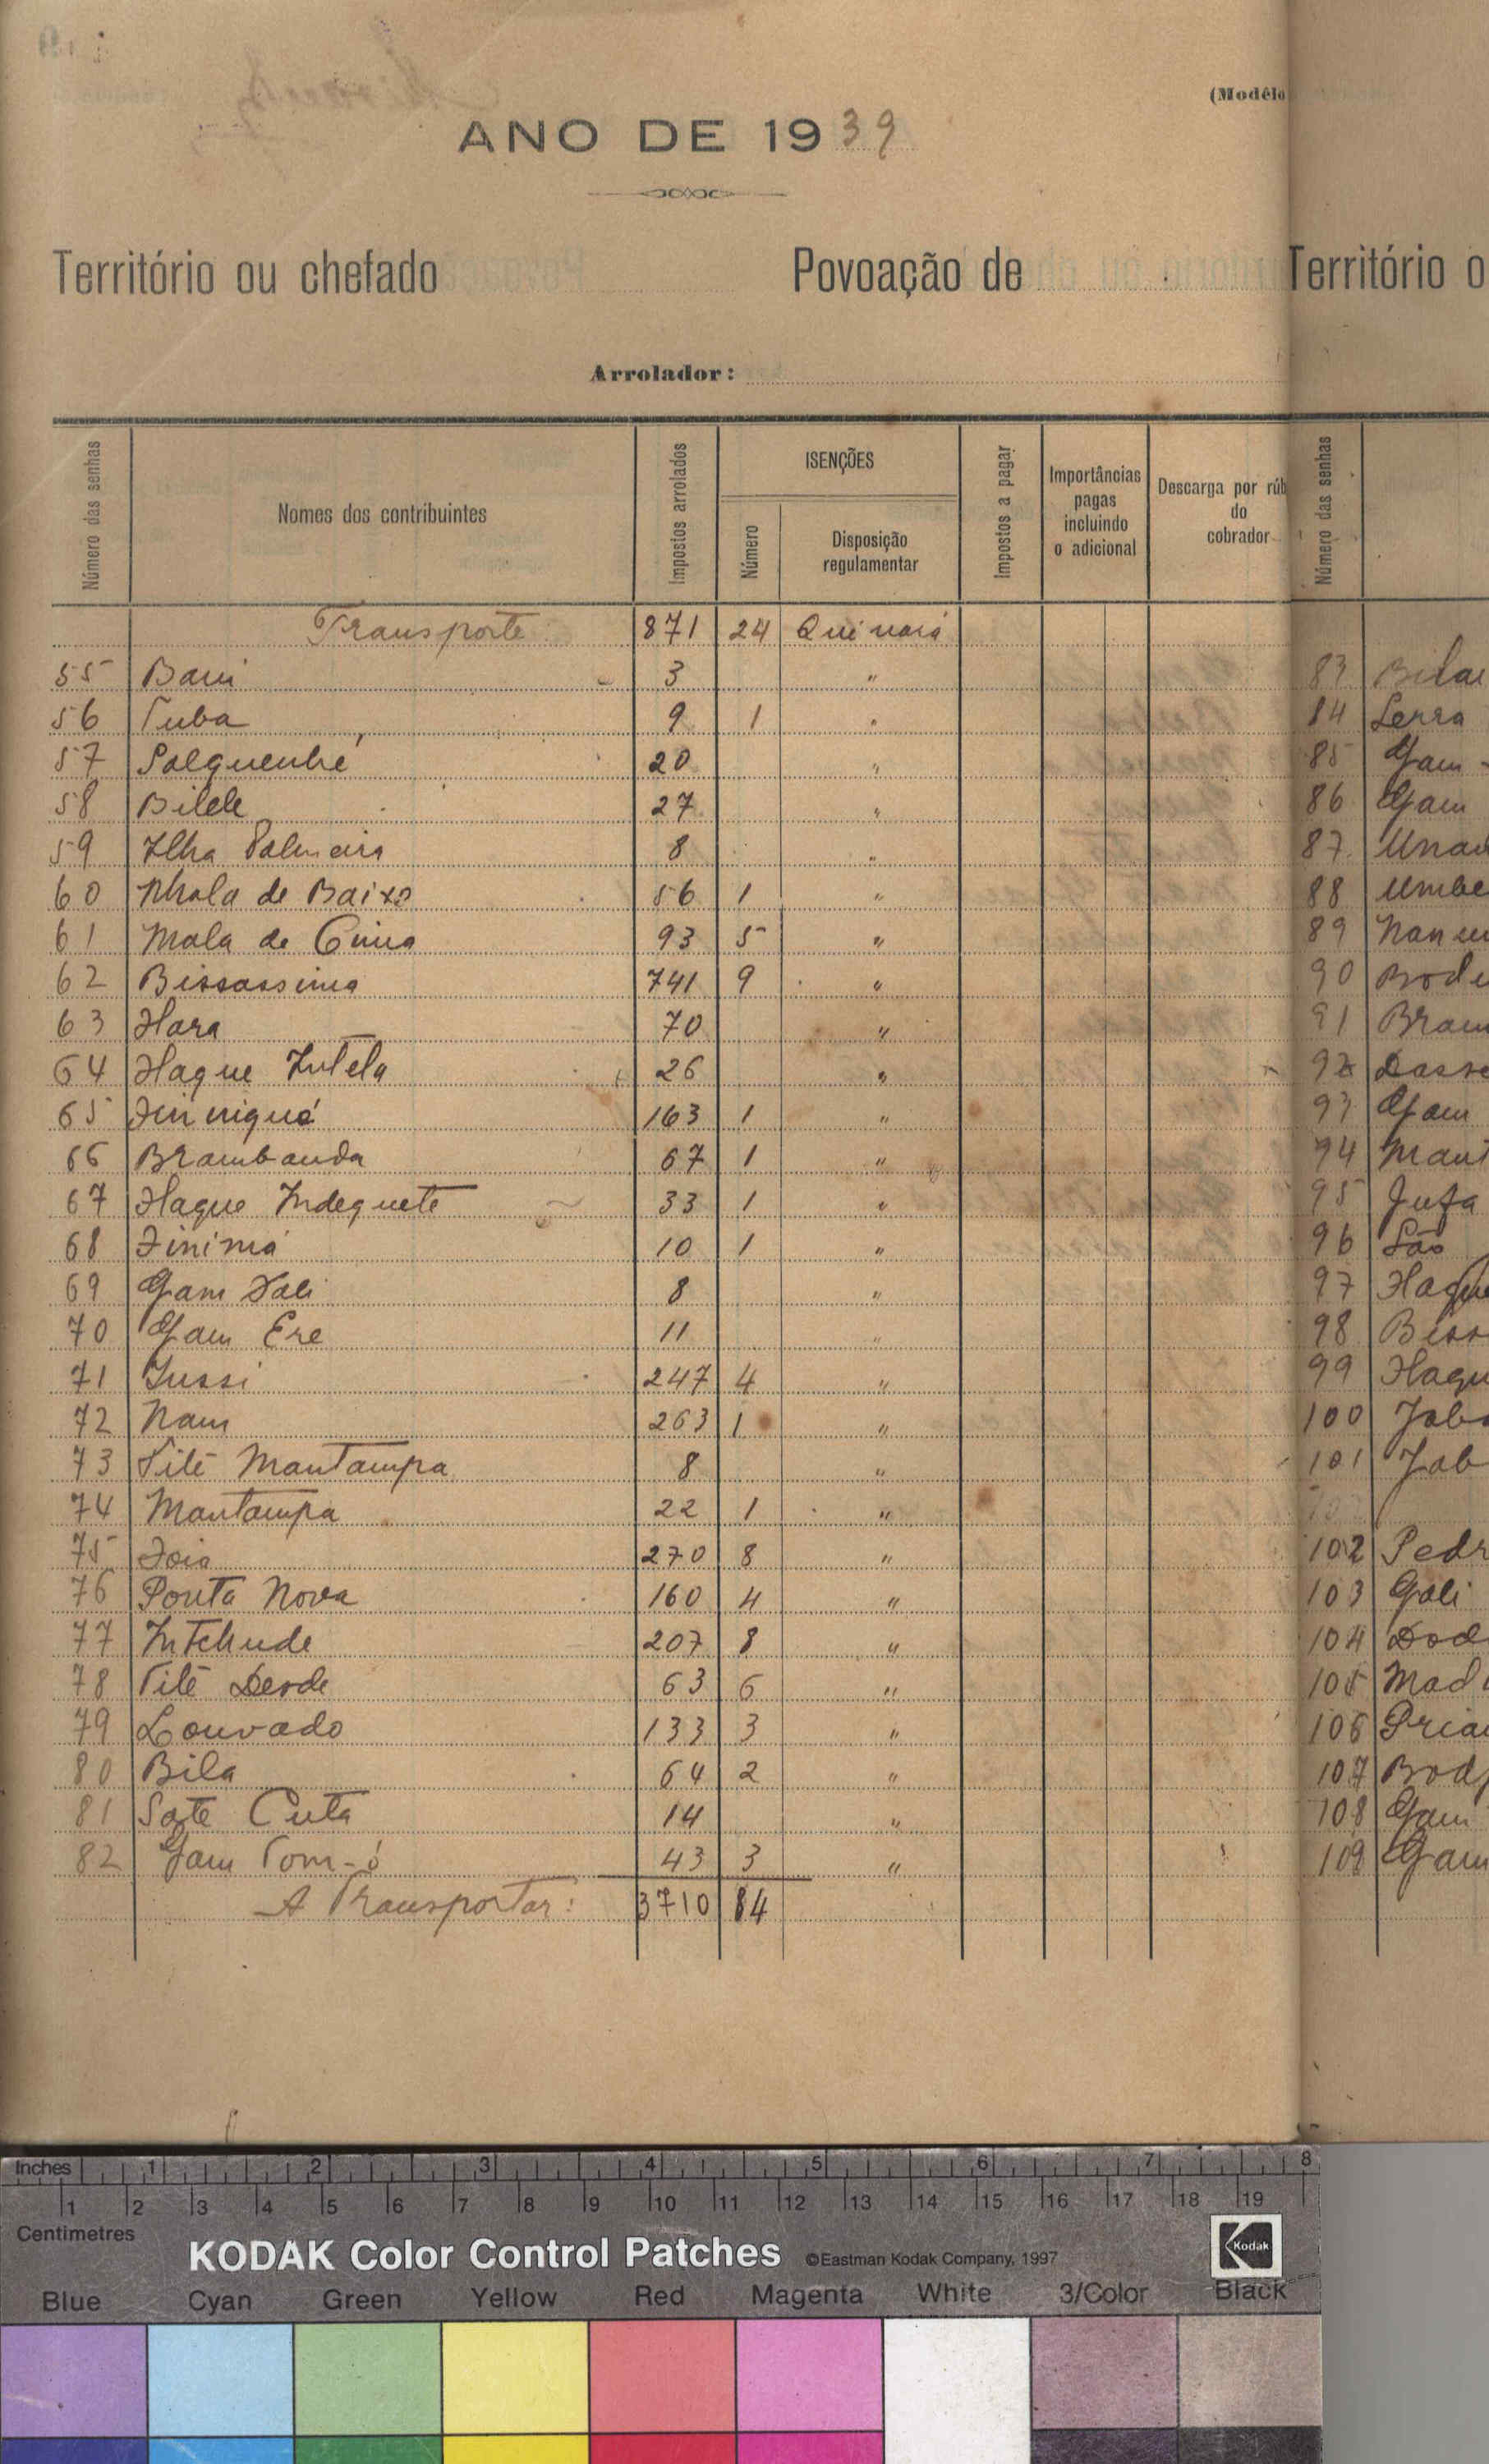 (Modêlo
ANO DE 1939
Território ou chefado Povoação de
Arrolador:
Número das senhas
Nomes dos contribuintes
Impostos arrolados
ISENÇÕES
Número
Disposição regulamentar
Impostos a pagar
Importâncias pagas incluindo o adicional
Descarga por rúb do cobrador
Transporte 871 24 Quinará
55 3 "
56 Tuba 9 1 "
57 20 "
58 Bilele 27 "
59 Ilha Palmeira 8 "
60 Nhala de Baixo 56 1 "
61 Mala de Cuiua 93 5 "
62 Bissassima 741 9 "
63 Flara 70 "
64 Flaque Intela 26 "
65 163 1 "
66 Brambanda 67 1 "
67 Flaque Indequete 33 1 "
68 10 1 "
69 Gam 8 "
70 Gam Ere 11 "
71 Jussi 247 4 "
72 Nam 263 1 "
73 Tite Mantampa 8 "
74 Mantampa 22 1 "
75 270 8 "
76 Ponta Nova 160 4 "
77 Intchude 207 8 "
78 Tite Desde 63 6 "
79 Louvado 133 3 "
80 Bila 64 2 "
81 Cuta 14 "
82 Gam Tom-ó 43 3 "
A Transportar: 3710 84
Território o
Número das senhas
83 Bilai
84 Lenra
85 Gam
86 Gam
87
88 Umbe
89
90 Bode
91 Bram
92 Dasse
93 Gam
94 Mant
95 Jufa
96 São
97 Flaque
98 Biss
99 Flaqu
100 Jab
101 Jab
102 Pedr
103 Gali
104 Dod
105 Mad
106 Pria
107 Bod
108 Gam
109 Gam
Inches 1 2 3 4 5 6 7 8
1 2 3 4 5 6 7 8 9 10 11 12 13 14 15 16 17 18 19
Centimetres
KODAK Color Control Patches ©Eastman Kodak Company, 1997 Kodak
Blue Cyan Green Yellow Red Magenta White 3/Color Black